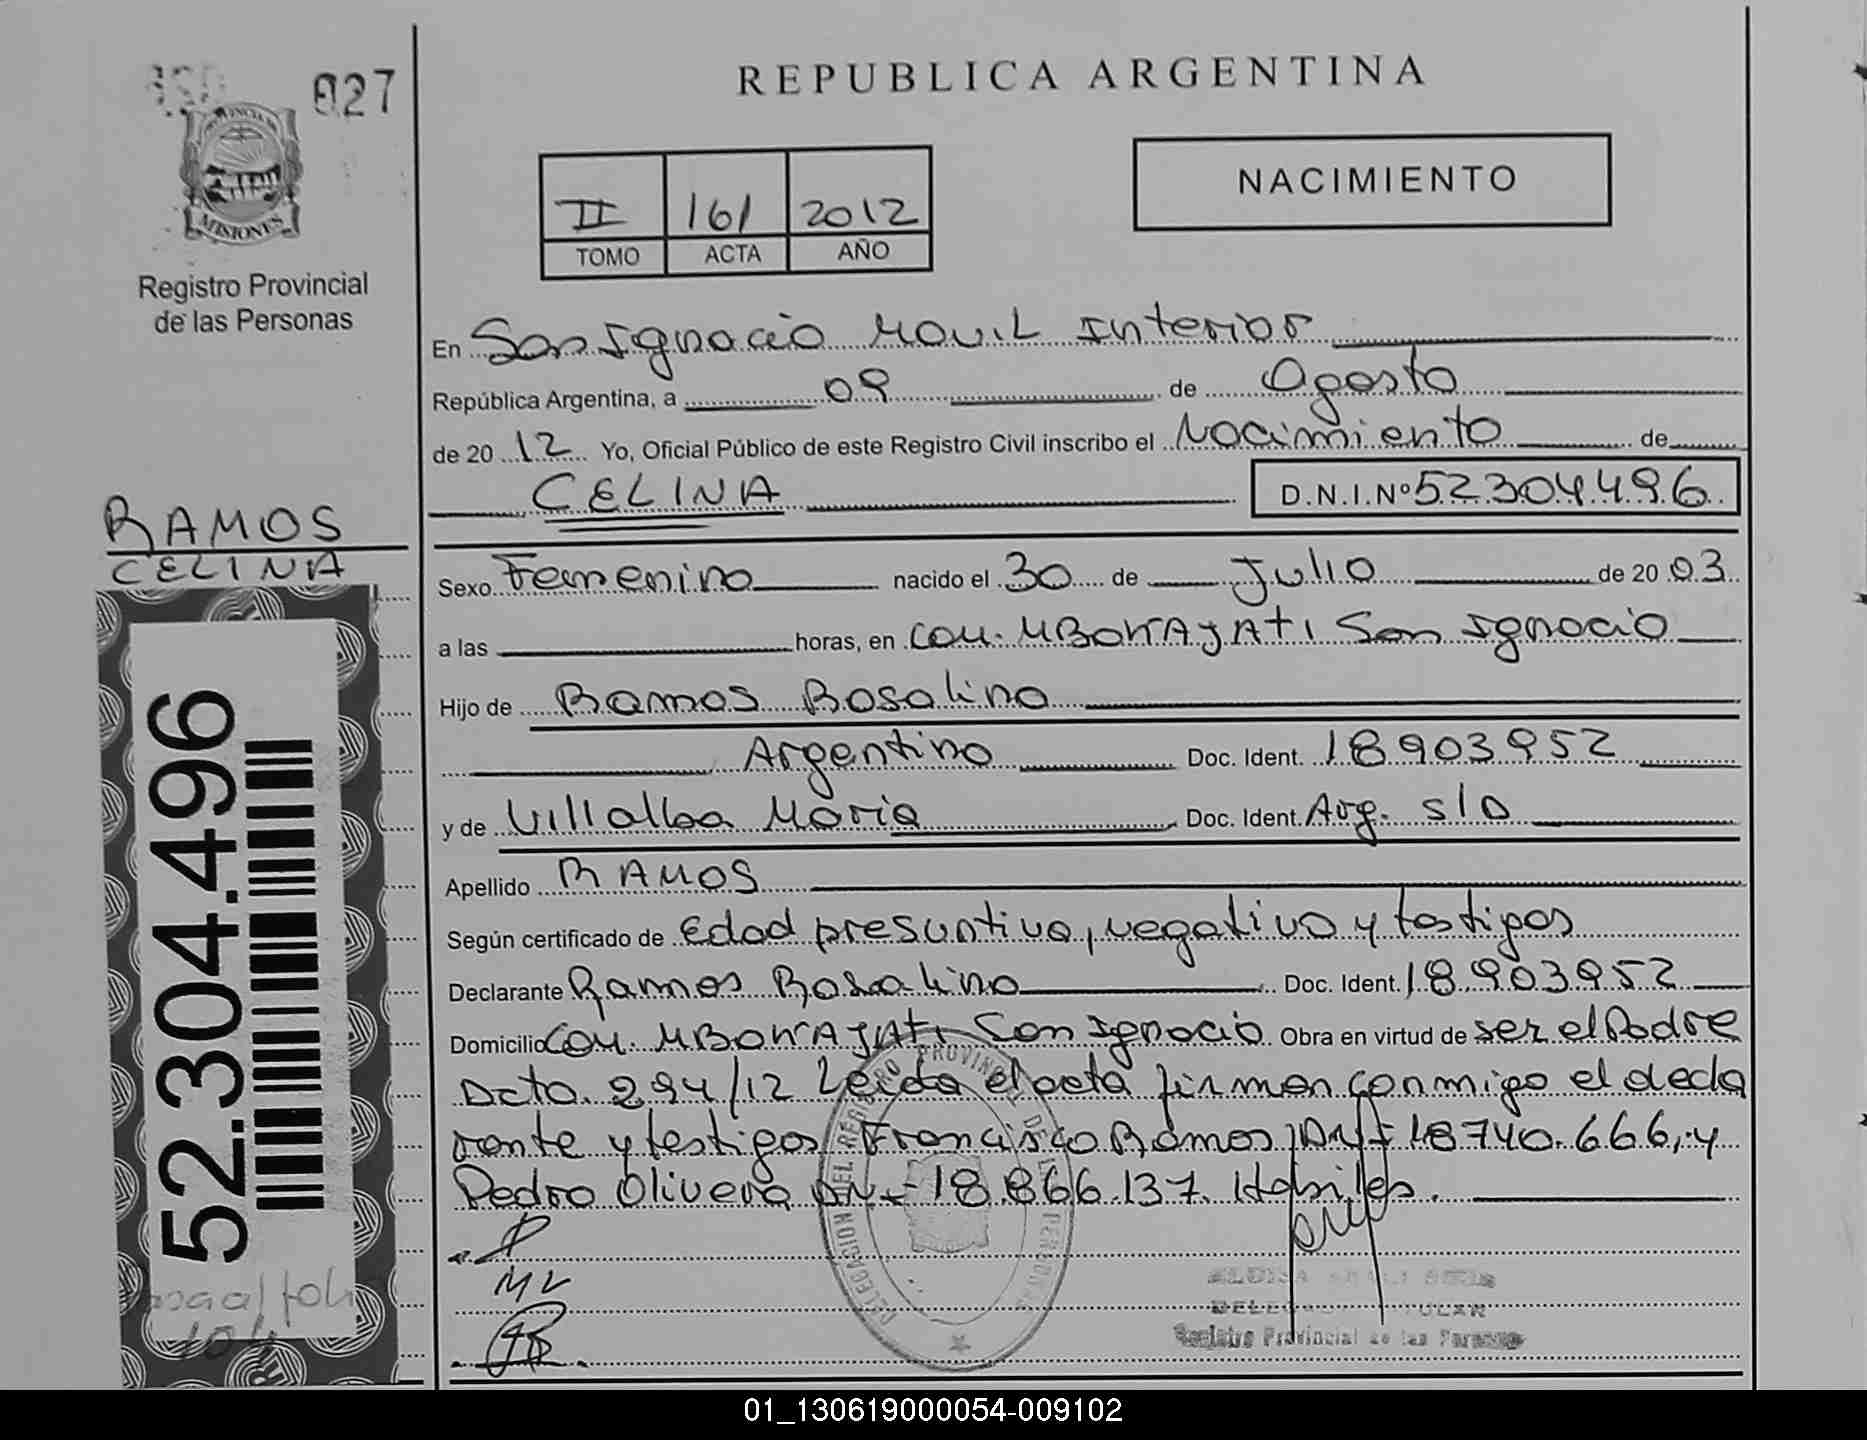 027
REPUBLICA ARGENTINA
PROVINCIA DE
MISIONES
Registro Provincial
de las Personas
II 161 2012
TOMO ACTA AÑO
NACIMIENTO
En San Ignacio Movil Interior
República Argentina, a 09 de Agosto
de 2012 Yo, Oficial Público de este Registro Civil inscribo el Nacimiento de
CELINA D.N.I.Nº 52304496
RAMOS
CELINA
Sexo Femenino nacido el 30 de Julio de 2003
a las horas, en Com. MBOKAJATI San Ignacio
Hijo de Ramos Rosalino
Argentino Doc. Ident. 18903952
y de Villalba Maria Doc. Ident. Arg. S/D
Apellido RAMOS
Según certificado de Edad presuntiva, negativo y testigos
Declarante Ramos Rosalino Doc. Ident. 18903952
Domicilio Com. MBOKAJATI San Ignacio Obra en virtud de ser el Padre
Dcto. 294/12 Leida el acta firman conmigo el decla
rante y testigos Francisco Ramos, DNI 18740.666, y
Pedro Olivera DNI 18.866.137. Habiles.
52.304.496
MV
DELEGACION DEL REGISTRO PROVINCIAL DE LAS PERSONAS
Registro Provincial de las Personas
104
01_130619000054-009102